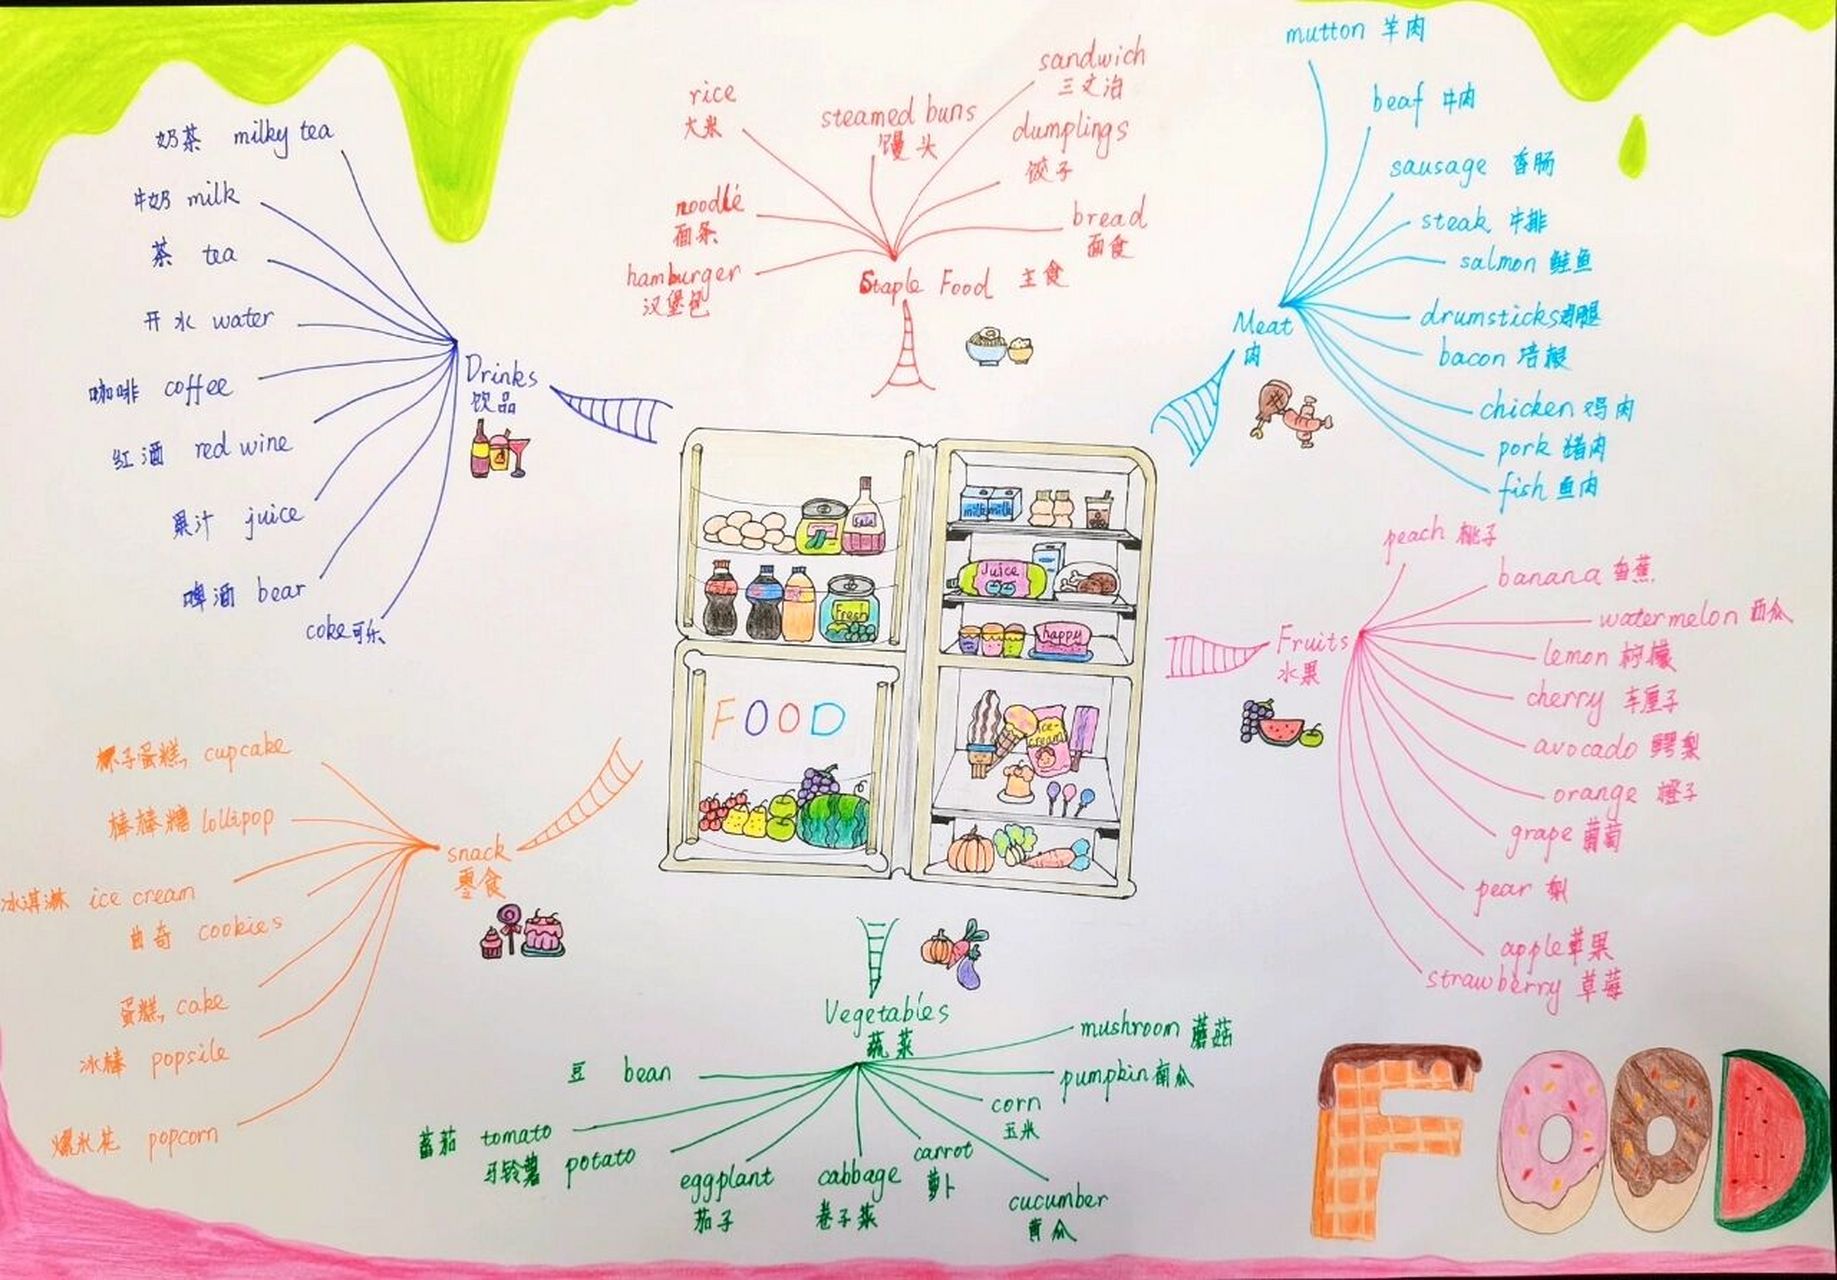 奶茶 milky tea
牛奶 milk
茶 tea
开水 water
咖啡 coffee
红酒 red wine
果汁 juice
啤酒 bear
coke 可乐
Drinks
饮品
rice
大米
steamed buns
馒头
sandwich
三文治
dumplings
饺子
noodle
面条
bread
面食
hamburger
汉堡包
Staple Food 主食
mutton 羊肉
beaf 牛肉
sausage 香肠
steak 牛排
salmon 鲑鱼
drumsticks 鸡腿
bacon 培根
chicken 鸡肉
pork 猪肉
fish 鱼肉
Meat
肉
peach 桃子
banana 香蕉
watermelon 西瓜
lemon 柠檬
cherry 车厘子
avocado 鳄梨
orange 橙子
grape 葡萄
pear 梨
apple 苹果
strawberry 草莓
Fruits
水果
milk milk
Juice
Fresh
happy
FOOD
ice-
cream
杯子蛋糕 cupcake
棒棒糖 lollipop
冰淇淋 ice cream
曲奇 cookies
蛋糕 cake
冰棒 popsile
爆米花 popcorn
snack
零食
Vegetables
蔬菜
豆 bean
蕃茄 tomato
马铃薯 potato
eggplant
茄子
cabbage
卷子菜
carrot
萝卜
cucumber
黄瓜
corn
玉米
pumpkin 南瓜
mushroom 蘑菇
FOOD